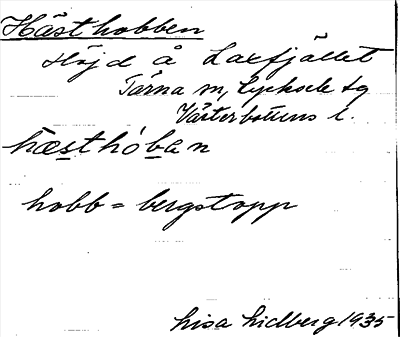 Hästhobben
Höjd å Laxfjället
Tärna sn, Lycksele tg
Västerbottens l.
hæsthób̲a̲n
hobb = bergstopp
Lisa Lidberg 1935